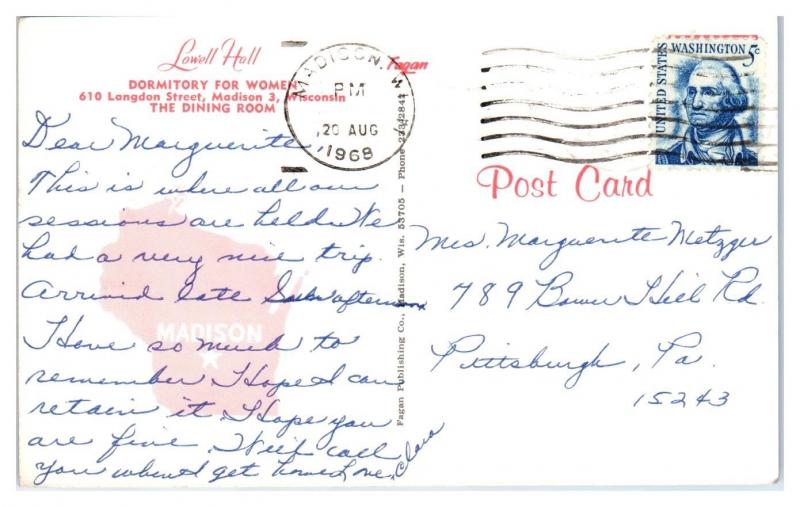 Lowell Hall
DORMITORY FOR WOMEN
610 Langdon Street, Madison 3, Wisconsin
THE DINING ROOM
Fagan
MADISON, W
PM
20 AUG
1968
UNITED STATES
WASHINGTON 5c
Post Card
Dear Marguerite,
This is where all our
sessions are held. We
had a very nice trip.
Arrived late Sun afternoon
I have so much to
remember I hope I can
retain it. I hope you
are fine. Will call
you when I get home Love, Clara
MADISON
Fagan Publishing Co., Madison, Wis. 53705 — Phone 233-2841
Mrs. Marguerite Metzger
789 Bower Hill Rd.
Pittsburgh, Pa.
15243